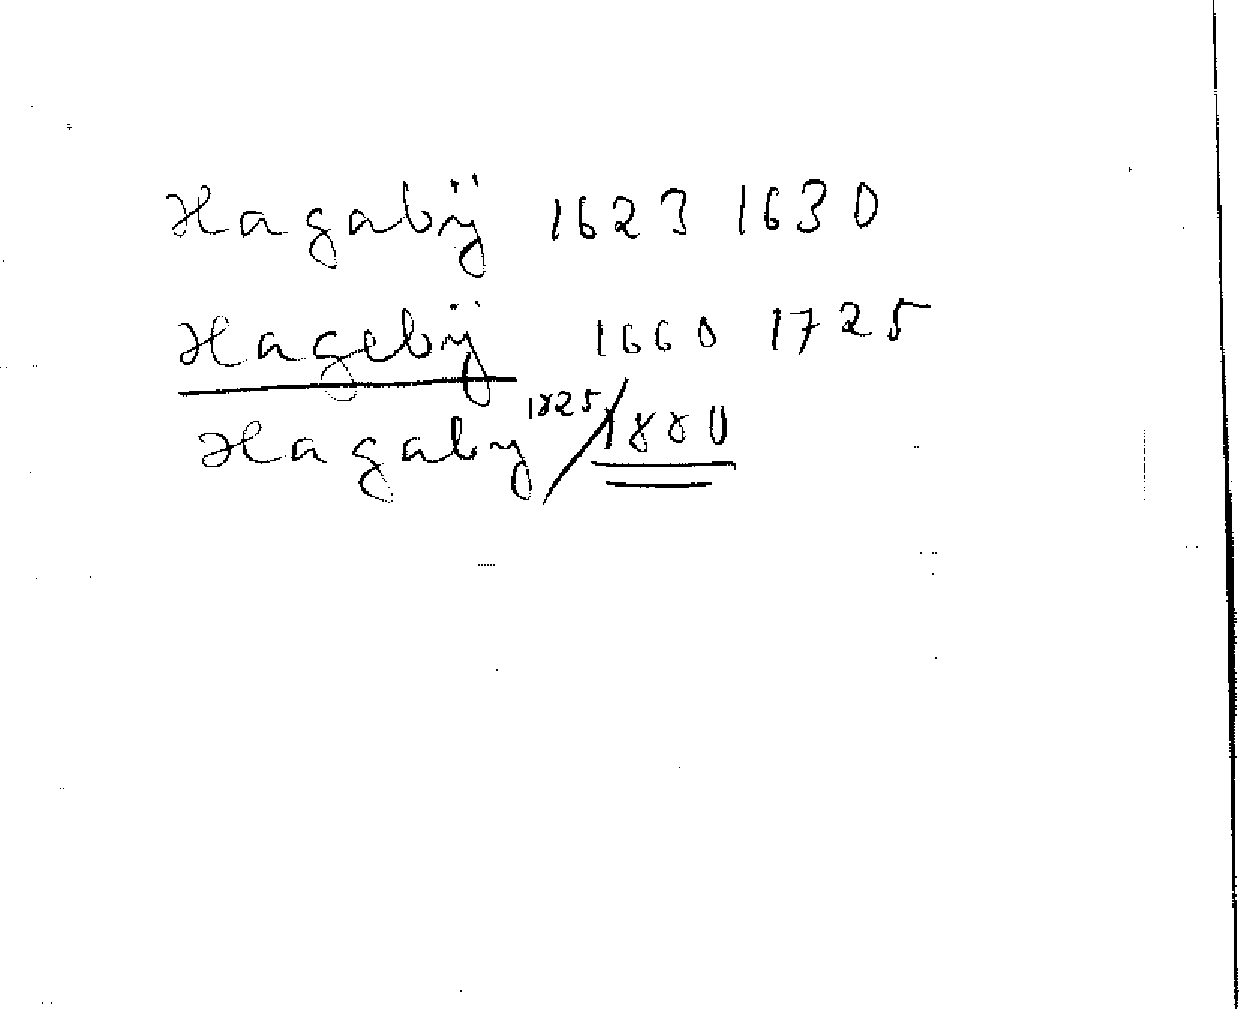 Hagabÿ 1623 1630
Hagebÿ 1660 1725
Hagaby 1825/1880